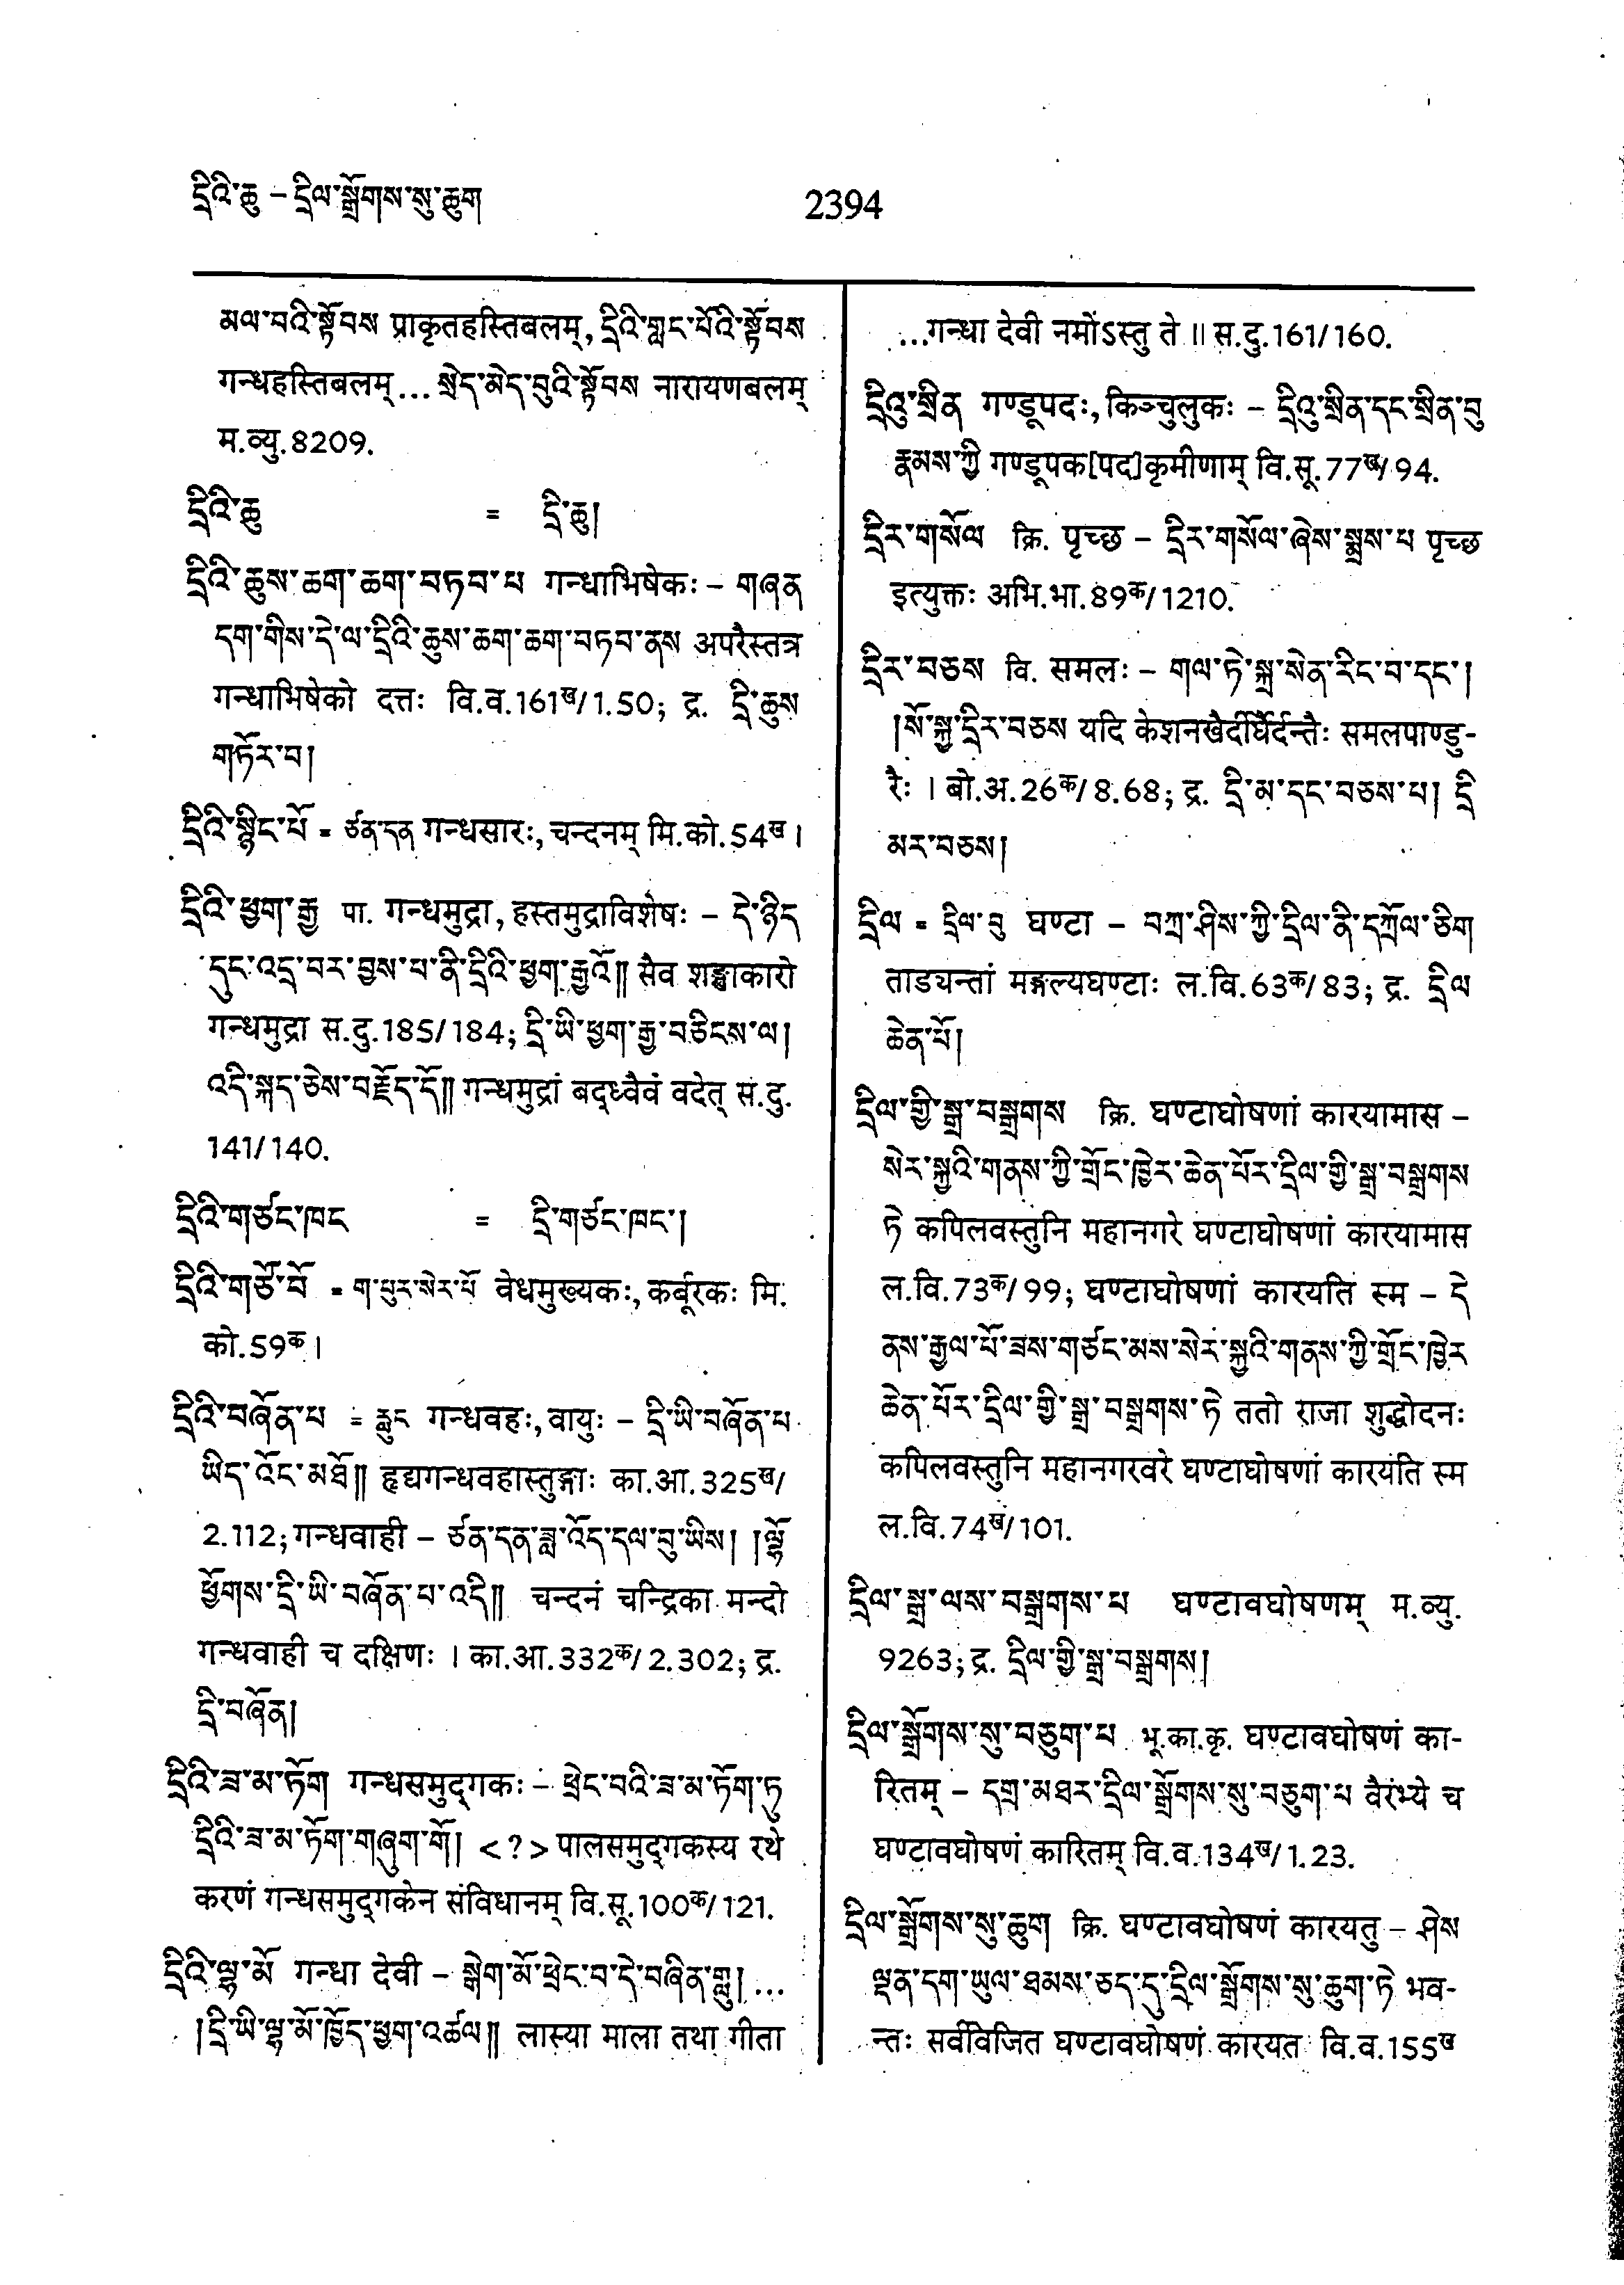 དྲིའི་ཆུ – དྲིལ་སྒྲོགས་སུ་ཆུག
2394
མལ་བའི་སྟོབས प्राकृतहस्तिबलम्, དྲིའི་གླང་པོའི་སྟོབས
गन्धहस्तिबलम्... སྲེད་མེད་བུའི་སྟོབས नारायणबलम्
म.व्यु.8209.
དྲིའི་ཆུ = དྲི་ཆུ།
དྲིའི་ཆུས་ཆག་ཆག་བཏབ་པ गन्धाभिषेकः – གཞན
དག་གིས་དེ་ལ་དྲིའི་ཆུས་ཆག་ཆག་བཏབ་ནས अपरैस्तत्र
गन्धाभिषेको दत्तः वि.व.161ख/1.50; द्र. དྲི་ཆུས
གཏོར་བ།
དྲིའི་སྙིང་པོ = ཙན་དན गन्धसारः, चन्दनम् मि.को.54ख।
དྲིའི་ཕྱག་རྒྱ पा. गन्धमुद्रा, हस्तमुद्राविशेषः – དེ་ཉིད
དུང་འདྲ་བར་བྱས་པ་ནི་དྲིའི་ཕྱག་རྒྱའོ༎ सैव शङ्खाकारो
गन्धमुद्रा स.दु.185/184; དྲི་ཡི་ཕྱག་རྒྱ་བཅིངས་ལ།
འདི་སྐད་ཅེས་བརྗོད་དོ༎ गन्धमुद्रां बद्ध्वैवं वदेत् स.दु.
141/140.
དྲིའི་གཙང་ཁང = དྲི་གཙང་ཁང་།
དྲིའི་གཙོ་བོ = ག་པུར་སེར་པོ वेधमुख्यकः, कर्बूरकः मि.
को.59क।
དྲིའི་བཞོན་པ = རླུང गन्धवहः, वायुः – དྲི་ཡི་བཞོན་པ
ཡིད་འོང་མཐོ༎ हृद्यगन्धवहास्तुङ्गाः का.आ.325ख/
2.112; गन्धवाही – ཙན་དན་ཟླ་འོད་དལ་བུ་ཡིས། །ལྷོ
ཕྱོགས་དྲི་ཡི་བཞོན་པ་འདི༎ चन्दनं चन्द्रिका मन्दो
गन्धवाही च दक्षिणः । का.आ.332क/2.302; द्र.
དྲི་བཞོན།
དྲིའི་ཟ་མ་ཏོག गन्धसमुद्गकः – ཕྲེང་བའི་ཟ་མ་ཏོག་ཏུ
དྲིའི་ཟ་མ་ཏོག་གཞུག་གོ། <?> पालसमुद्गकस्य रथे
करणं गन्धसमुद्गकेन संविधानम् वि.सू.100क/121.
དྲིའི་ལྷ་མོ गन्धा देवी – སྒེག་མོ་ཕྲེང་བ་དེ་བཞིན་གླུ། ...
།དྲི་ཡི་ལྷ་མོ་ཁྱོད་ཕྱག་འཚལ༎ लास्या माला तथा गीता
...गन्धा देवी नमोंऽस्तु ते ॥ स.दु.161/160.
དྲིའུ་སྲིན गण्डूपदः, किञ्चुलुकः – དྲིའུ་སྲིན་དང་སྲིན་བུ
རྣམས་ཀྱི गण्डूपक[पद]कृमीणाम् वि.सू.77ख/94.
དྲིར་གསོལ क्रि. पृच्छ – དྲིར་གསོལ་ཞེས་སྨྲས་པ पृच्छ
इत्युक्तः अभि.भा.89क/1210.
དྲིར་བཅས वि. समलः – གལ་ཏེ་སྐྲ་སེན་རིང་བ་དང་།
།སོ་སྐྱ་དྲིར་བཅས यदि केशनखैर्दीर्घैर्दन्तैः समलपाण्डु-
रैः । बो.अ.26क/8.68; द्र. དྲི་མ་དང་བཅས་པ། དྲི
མར་བཅས།
དྲིལ = དྲིལ་བུ घण्टा – བཀྲ་ཤིས་ཀྱི་དྲིལ་ནི་དཀྲོལ་ཅིག
ताड्यन्तां मङ्गल्यघण्टाः ल.वि.63क/83; द्र. དྲིལ
ཆེན་པོ།
དྲིལ་གྱི་སྒྲ་བསྒྲགས क्रि. घण्टाघोषणां कारयामास –
སེར་སྐྱའི་གནས་ཀྱི་གྲོང་ཁྱེར་ཆེན་པོར་དྲིལ་གྱི་སྒྲ་བསྒྲགས
ཏེ कपिलवस्तुनि महानगरे घण्टाघोषणां कारयामास
ल.वि.73क/99; घण्टाघोषणां कारयति स्म – དེ
ནས་རྒྱལ་པོ་ཟས་གཙང་མས་སེར་སྐྱའི་གནས་ཀྱི་གྲོང་ཁྱེར
ཆེན་པོར་དྲིལ་གྱི་སྒྲ་བསྒྲགས་ཏེ ततो राजा शुद्धोदनः
कपिलवस्तुनि महानगरवरे घण्टाघोषणां कारयति स्म
ल.वि.74ख/101.
དྲིལ་སྒྲ་ལས་བསྒྲགས་པ घण्टावघोषणम् म.व्यु.
9263; द्र. དྲིལ་གྱི་སྒྲ་བསྒྲགས།
དྲིལ་སྒྲོགས་སུ་བཅུག་པ भू.का.कृ. घण्टावघोषणं का-
रितम् – དགྲ་མཐར་དྲིལ་སྒྲོགས་སུ་བཅུག་པ वैरंभ्ये च
घण्टावघोषणं कारितम् वि.व.134ख/1.23.
དྲིལ་སྒྲོགས་སུ་ཆུག क्रि. घण्टावघोषणं कारयतु – ཤེས
ལྡན་དག་ཡུལ་ཐམས་ཅད་དུ་དྲིལ་སྒྲོགས་སུ་ཆུག་ཏེ भव-
न्तः सर्वविजित घण्टावघोषणं कारयत वि.व.155ख